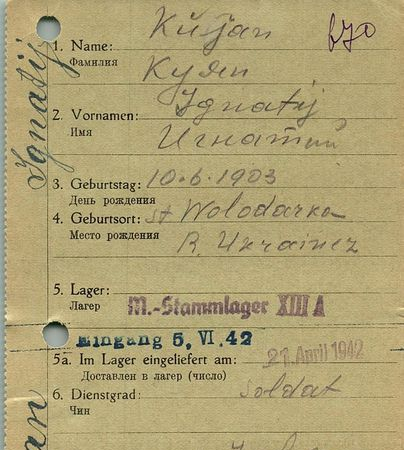 Kujan
670
1. Name:
Фамилия
Куян
Ignatij
2. Vornamen: Ignatij
Имя
Игнатий
3. Geburtstag: 10.6.1903
День рождения
4. Geburtsort: st Wolodarka
Место рождения
R. Ukrainez
5. Lager:
Лагер
M.-Stammlager XIII A
Eingang 5. VI. 42
5a. Im Lager eingeliefert am: 21. April 1942
Доставлен в лагер (число)
6. Dienstgrad: Soldat
Чин
an